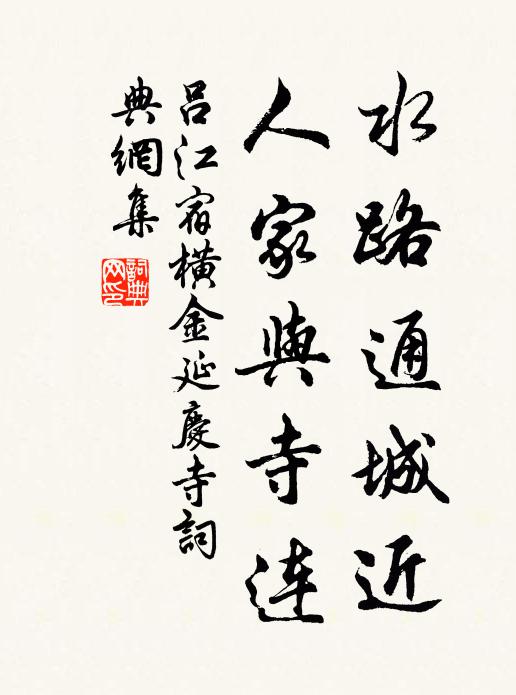 水路通城近
人家與寺連
呂江宿橫金延慶寺詞
典網集
詞典网印